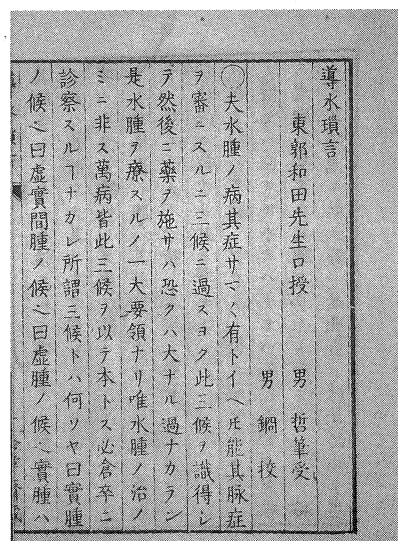 導水瑣言
東郭和田先生口授 男 哲筆受
男 鋼 挍
〇夫水腫ノ病其症サマ〱有トイヘ𪜈能其脉症
ヲ審ニスルニ三候ニ過スヨク此三候ヲ識得シ
テ然後ニ藥ヲ施サハ恐クハ大ナル過ナカラン
是水腫ヲ療スルノ一大要領ナリ唯水腫ノ治ノ
ミニ非ス萬病皆此三候ヲ以テ本トス必倉卒ニ
診察スルヿナカレ所謂三候トハ何ソヤ曰實腫
ノ候〻曰虚實間腫ノ候〻曰虚腫ノ候〻實腫ハ